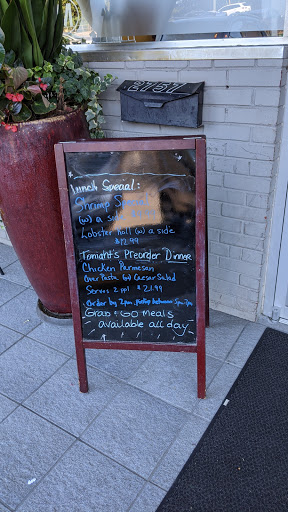 2757
Lunch Special:
Shrimp
(w) a side
Lobster Roll (w) a side
$12.99
Tonight's Preorder Dinner
Chicken Parmesan
Over Pasta (w) Caesar Salad
Serves 2 ppl $21.99
Order by 2pm, pickup between
Grab & Go Meals
available all day